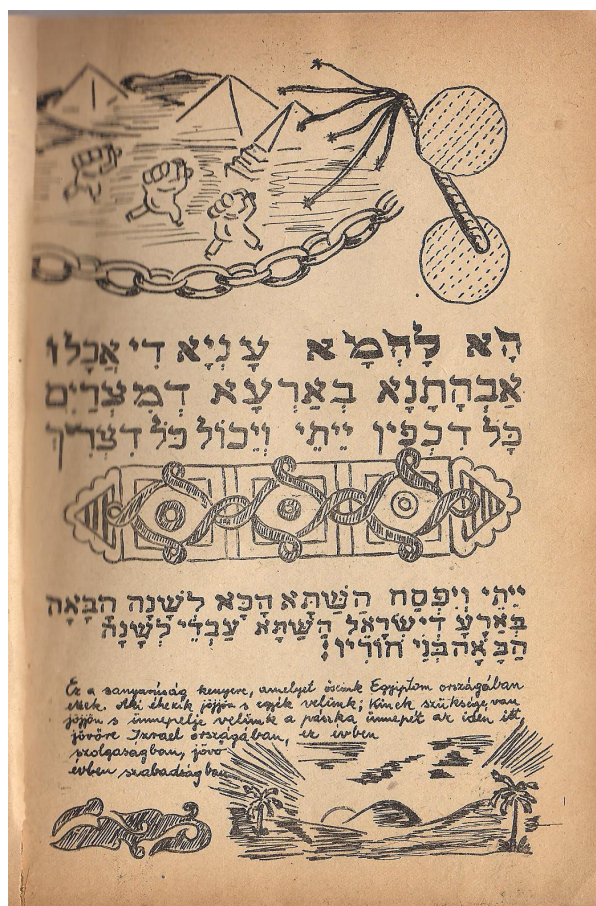 הָא לַהְמָא עַנְיָא דִי אֲכָלוּ
אַבְהָתָנָא בְּאַרְעָא דְמִצְרָיִם
כָּל דִכְפִין יֵיתֵי וְיֵכוֹל כָּל דִצְרִיךְ
יֵיתֵי וְיִפְסַח הָשַׁתָּא הָכָא לְשָׁנָה הַבָּאָה
בְּאַרְעָ דְיִשְׂרָאֵל הָשַׁתָּא עַבְדֵי לְשָׁנָה
הַבָּאָה בְּנֵי חוֹרִין!
Ez a sanyarúság kenyere, amelyet őseink Egyiptom országában
ettek. Aki éhezik jöjjön s egyék velünk; Kinek szüksége van
jöjjön s ünnepelje velünk a pászka ünnepét az idén itt,
jövőre Izrael országában, ez évben
szolgaságban, jövő
évben szabadságban